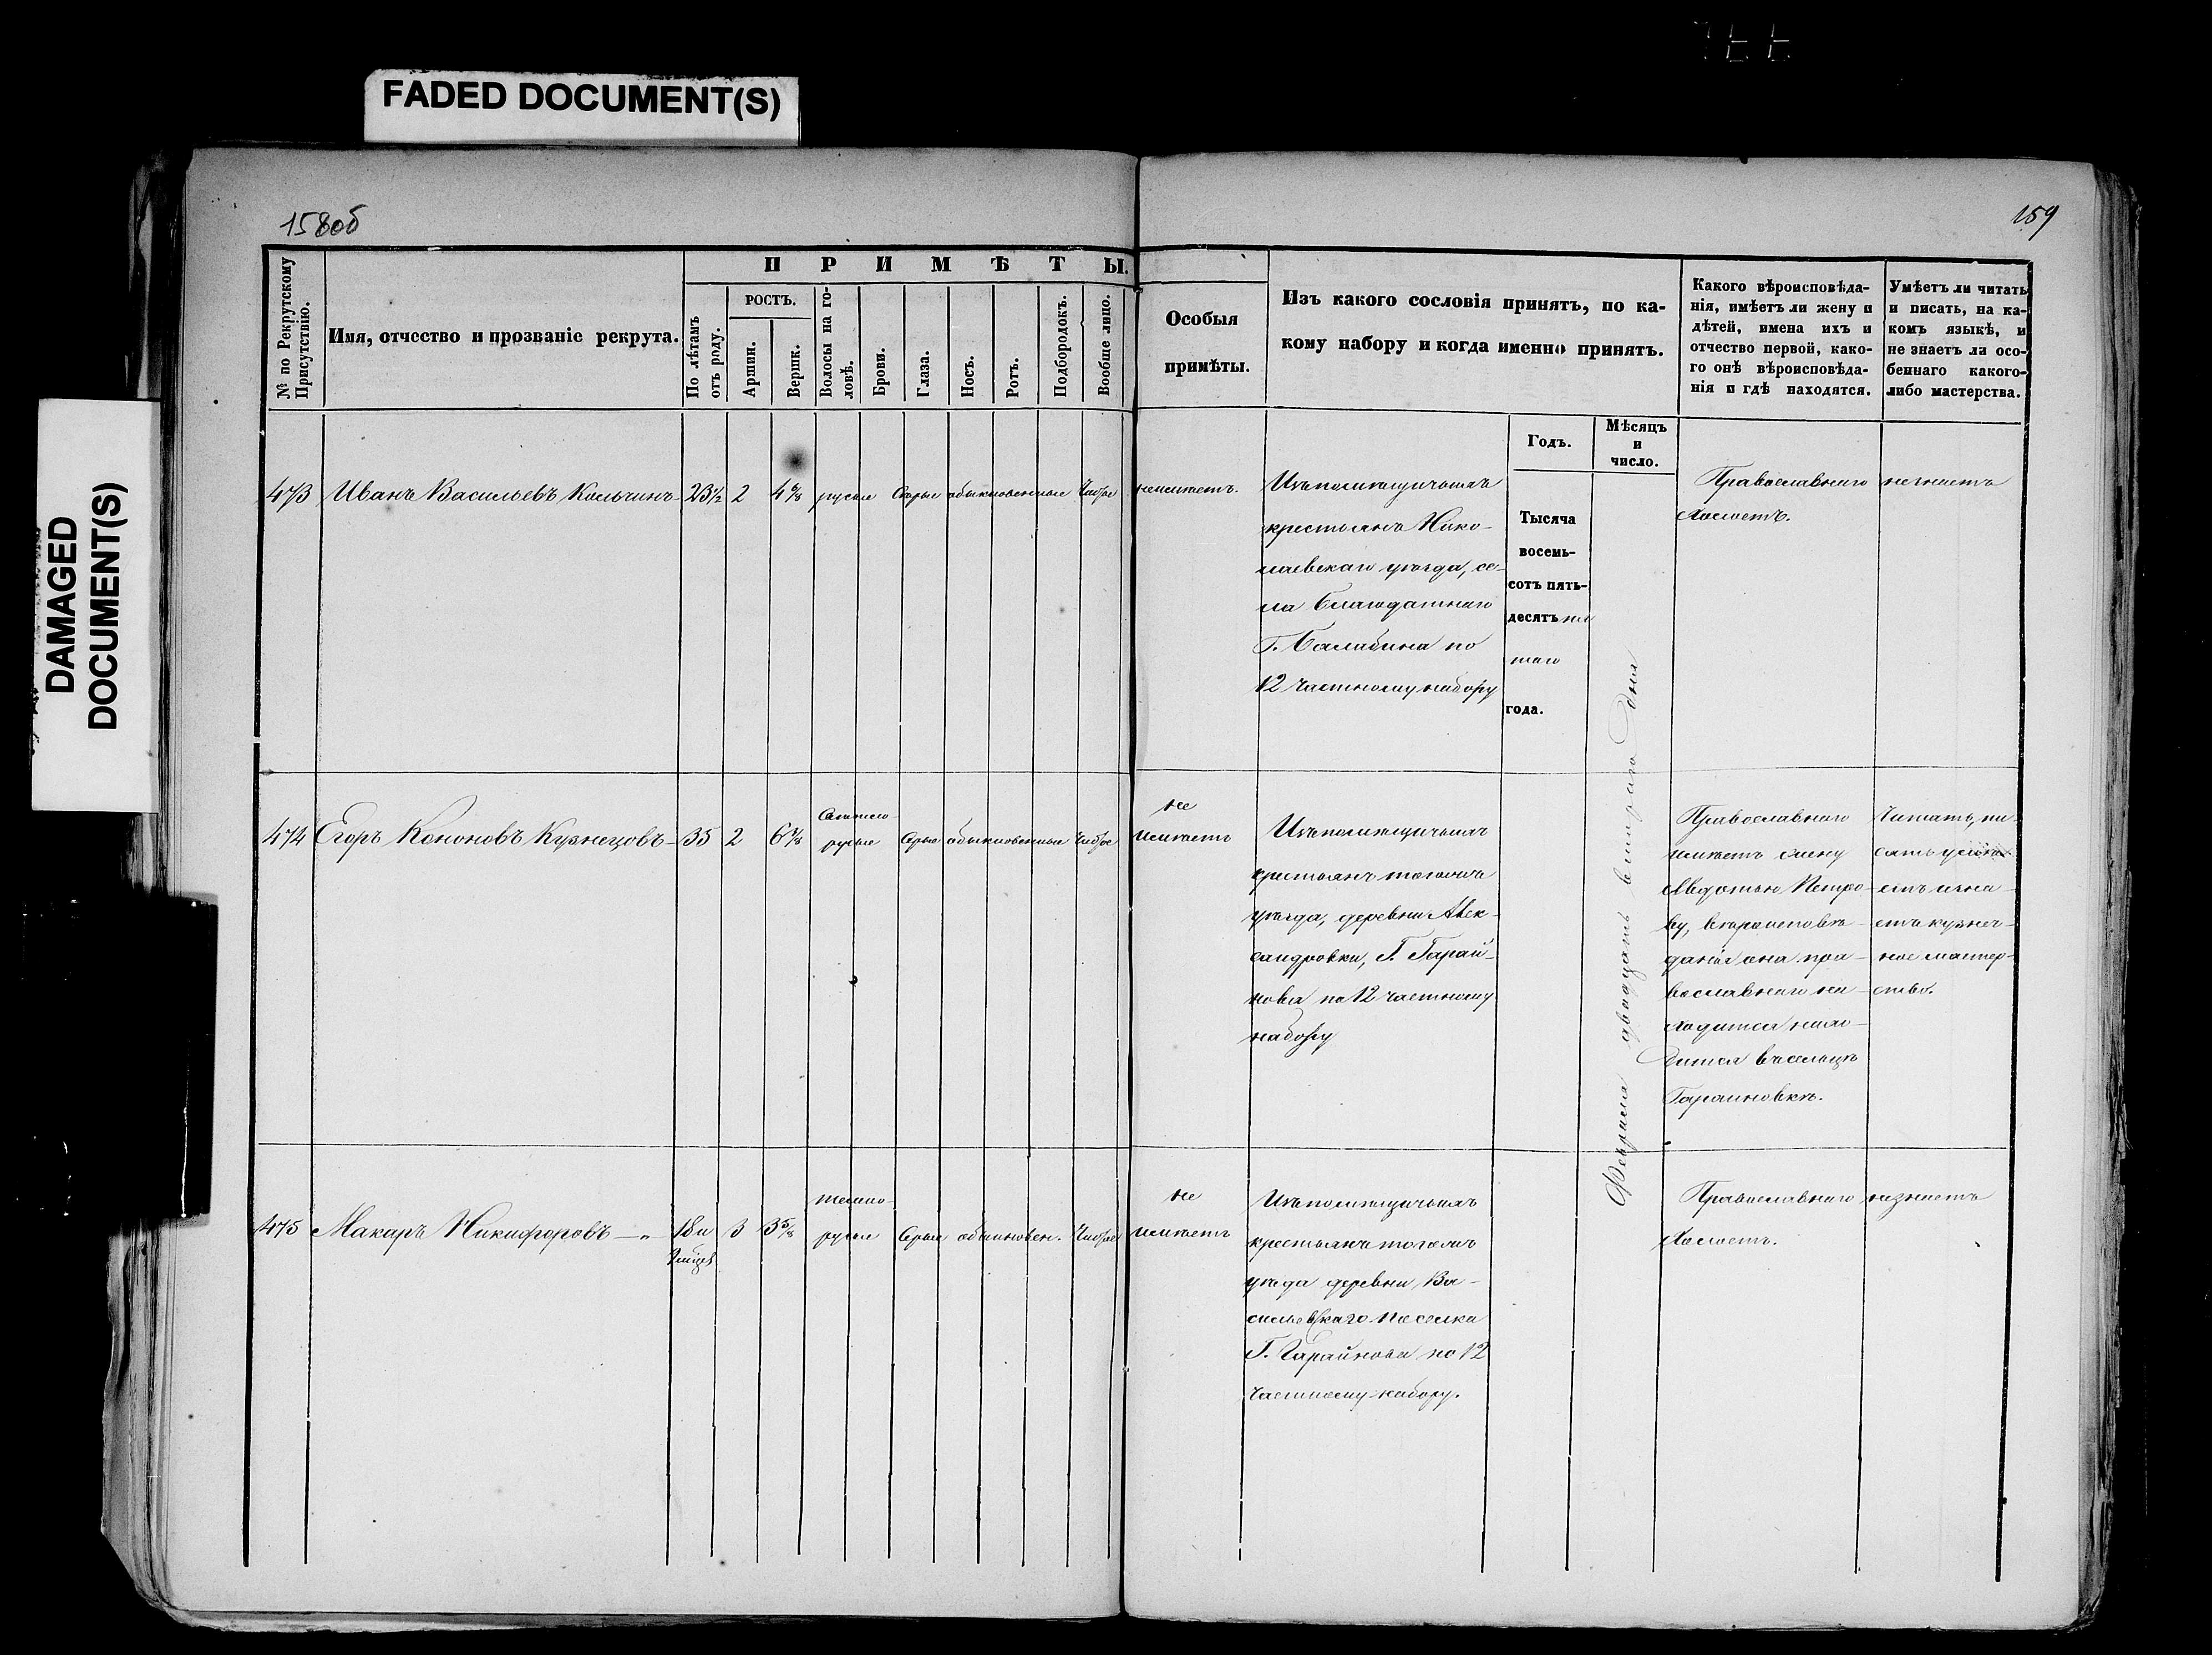 FADED DOCUMENT(S)
DAMAGED
DOCUMENT(S)
158об
159
№ по Рекрутскому
Присутствію.
Имя, отчество и прозваніе рекрута.
ПРИМѢТЫ.
По лѣтамъ
отъ роду.
РОСТЪ.
Аршин.
Вершк.
Волосы на го-
ловѣ.
Брови.
Глаза.
Носъ.
Ротъ.
Подбородокъ.
Вообще лицо.
Особыя
примѣты.
Изъ какого сословія принятъ, по ка-
кому набору и когда именно принятъ.
Какого вѣроисповѣда-
нія, имѣетъ ли жену и
дѣтей, имена ихъ и
отчество первой, како-
го онѣ вѣроисповѣда-
нія и гдѣ находятся.
Умѣетъ ли читать
и писать, на ка-
комъ языкѣ, и
не знаетъ ли осо-
беннаго какого-
либо мастерства.
Годъ.
Мѣсяцъ
и
число.
473 Иванъ Васильевъ Кольчинъ 23½ 2 4 6/8 русые Сѣрые обыкновенные Чистое неимѣетъ.
Изъ помѣщичьихъ
крестьянъ Нико-
лаевскаго уѣзда, се-
ла Благодатнаго
Г. Балабина по
12 частному набору
Тысяча
восемь-
сотъ пять-
десятъ пя
таго
года.
Февраля двадцать втораго дня
Православнаго
Холостъ.
незнаетъ
474 Егоръ Кононовъ Кузнецовъ 35 2 6⅞
Свѣтло-
русые Сѣрые обыкновенные Чистое
не
имѣетъ
Изъ помѣщичьихъ
крестьянъ тогожъ
уѣзда, деревни Алек-
сандровки, Г. Гарай-
нова по 12 частному
набору
Православнаго
имѣетъ жену
Авдотью Петро-
ву, вѣроисповѣ-
данія она пра-
вославнаго на-
ходится нахо-
дится въ сельцѣ
Гарайновкѣ.
Читать, пи-
сать умѣ
етъ и зна-
етъ кузнеч-
ное мастер-
ство.
475 Макаръ Никифоровъ — „ 18 и 3 3 5/8
темно-
русые Сѣрые обыкновен. Чистое
не
имѣетъ
Изъ помѣщичьихъ
крестьянъ тогожъ
уѣзда деревни Ва-
сильевскаго поселка
Г. Гарайнова по 12
частному набору.
Православнаго
Холостъ.
незнаетъ